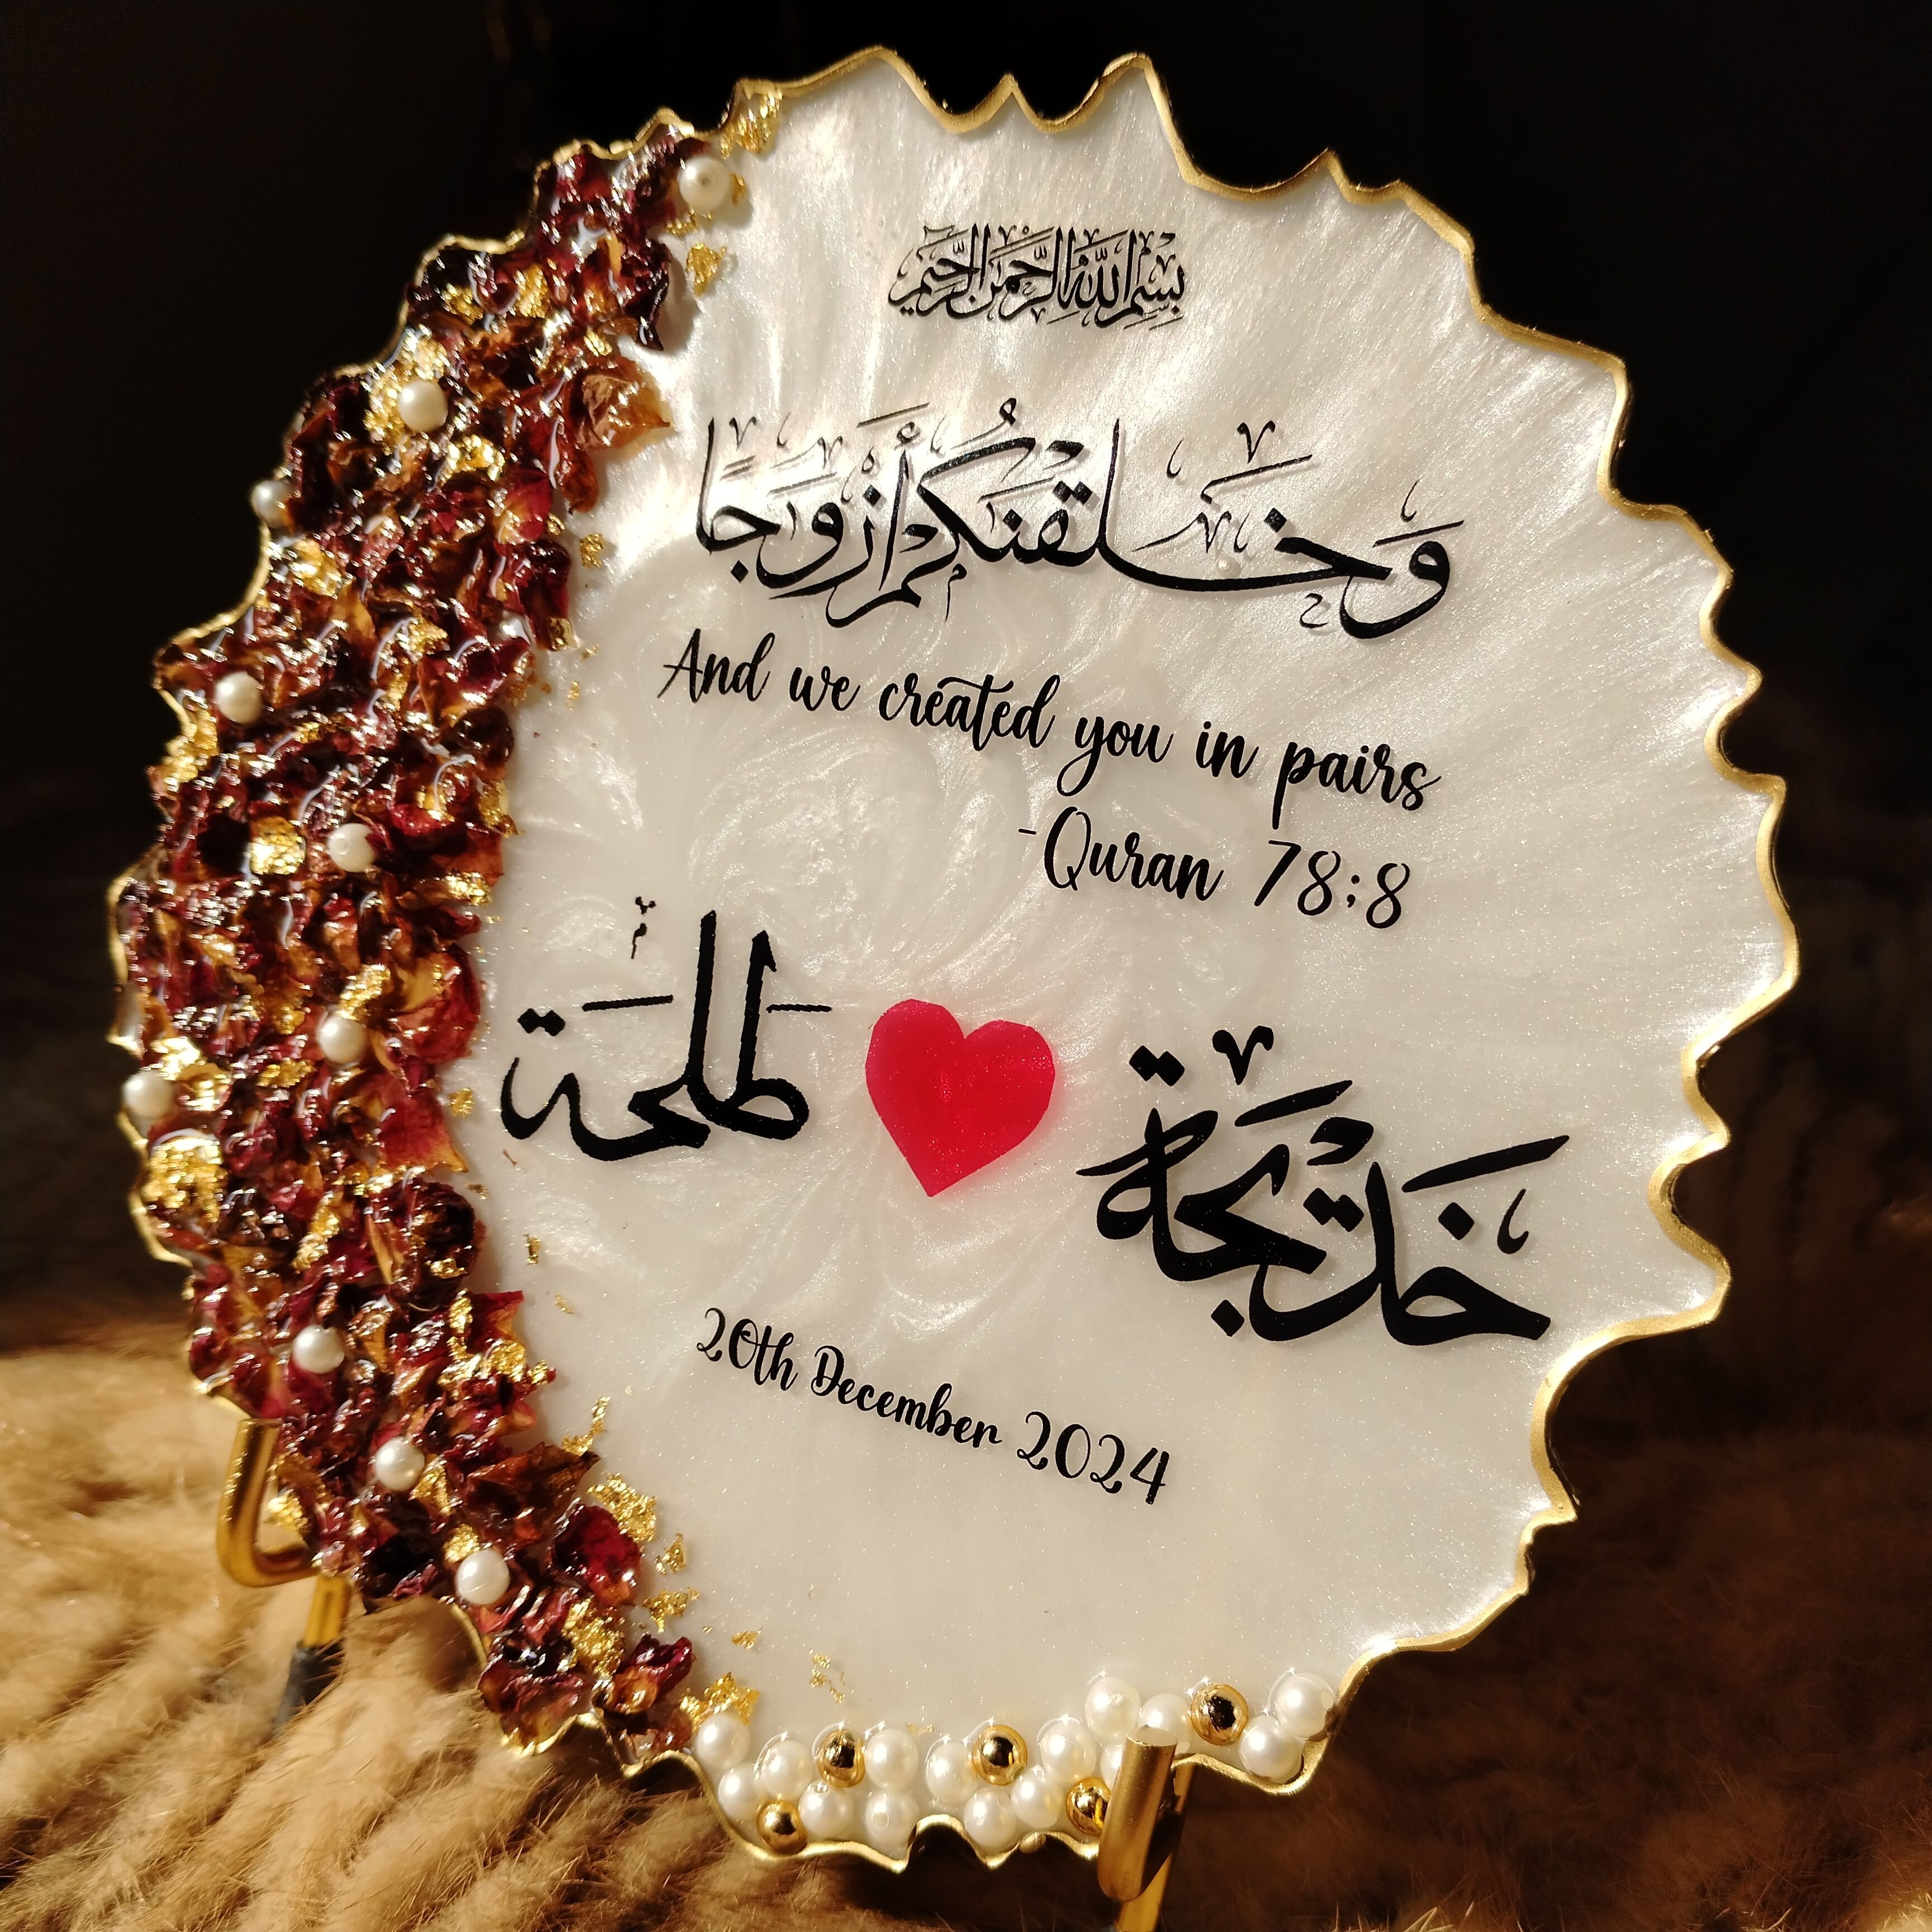 بِسْمِ اللَّهِ الرَّحْمَنِ الرَّحِيمِ
وَخَلَقْنَكُمْ أَزْوَجًا
And we created you in pairs
-Quran 78:8
خَدِيجَة طَلحَة
20th December 2024